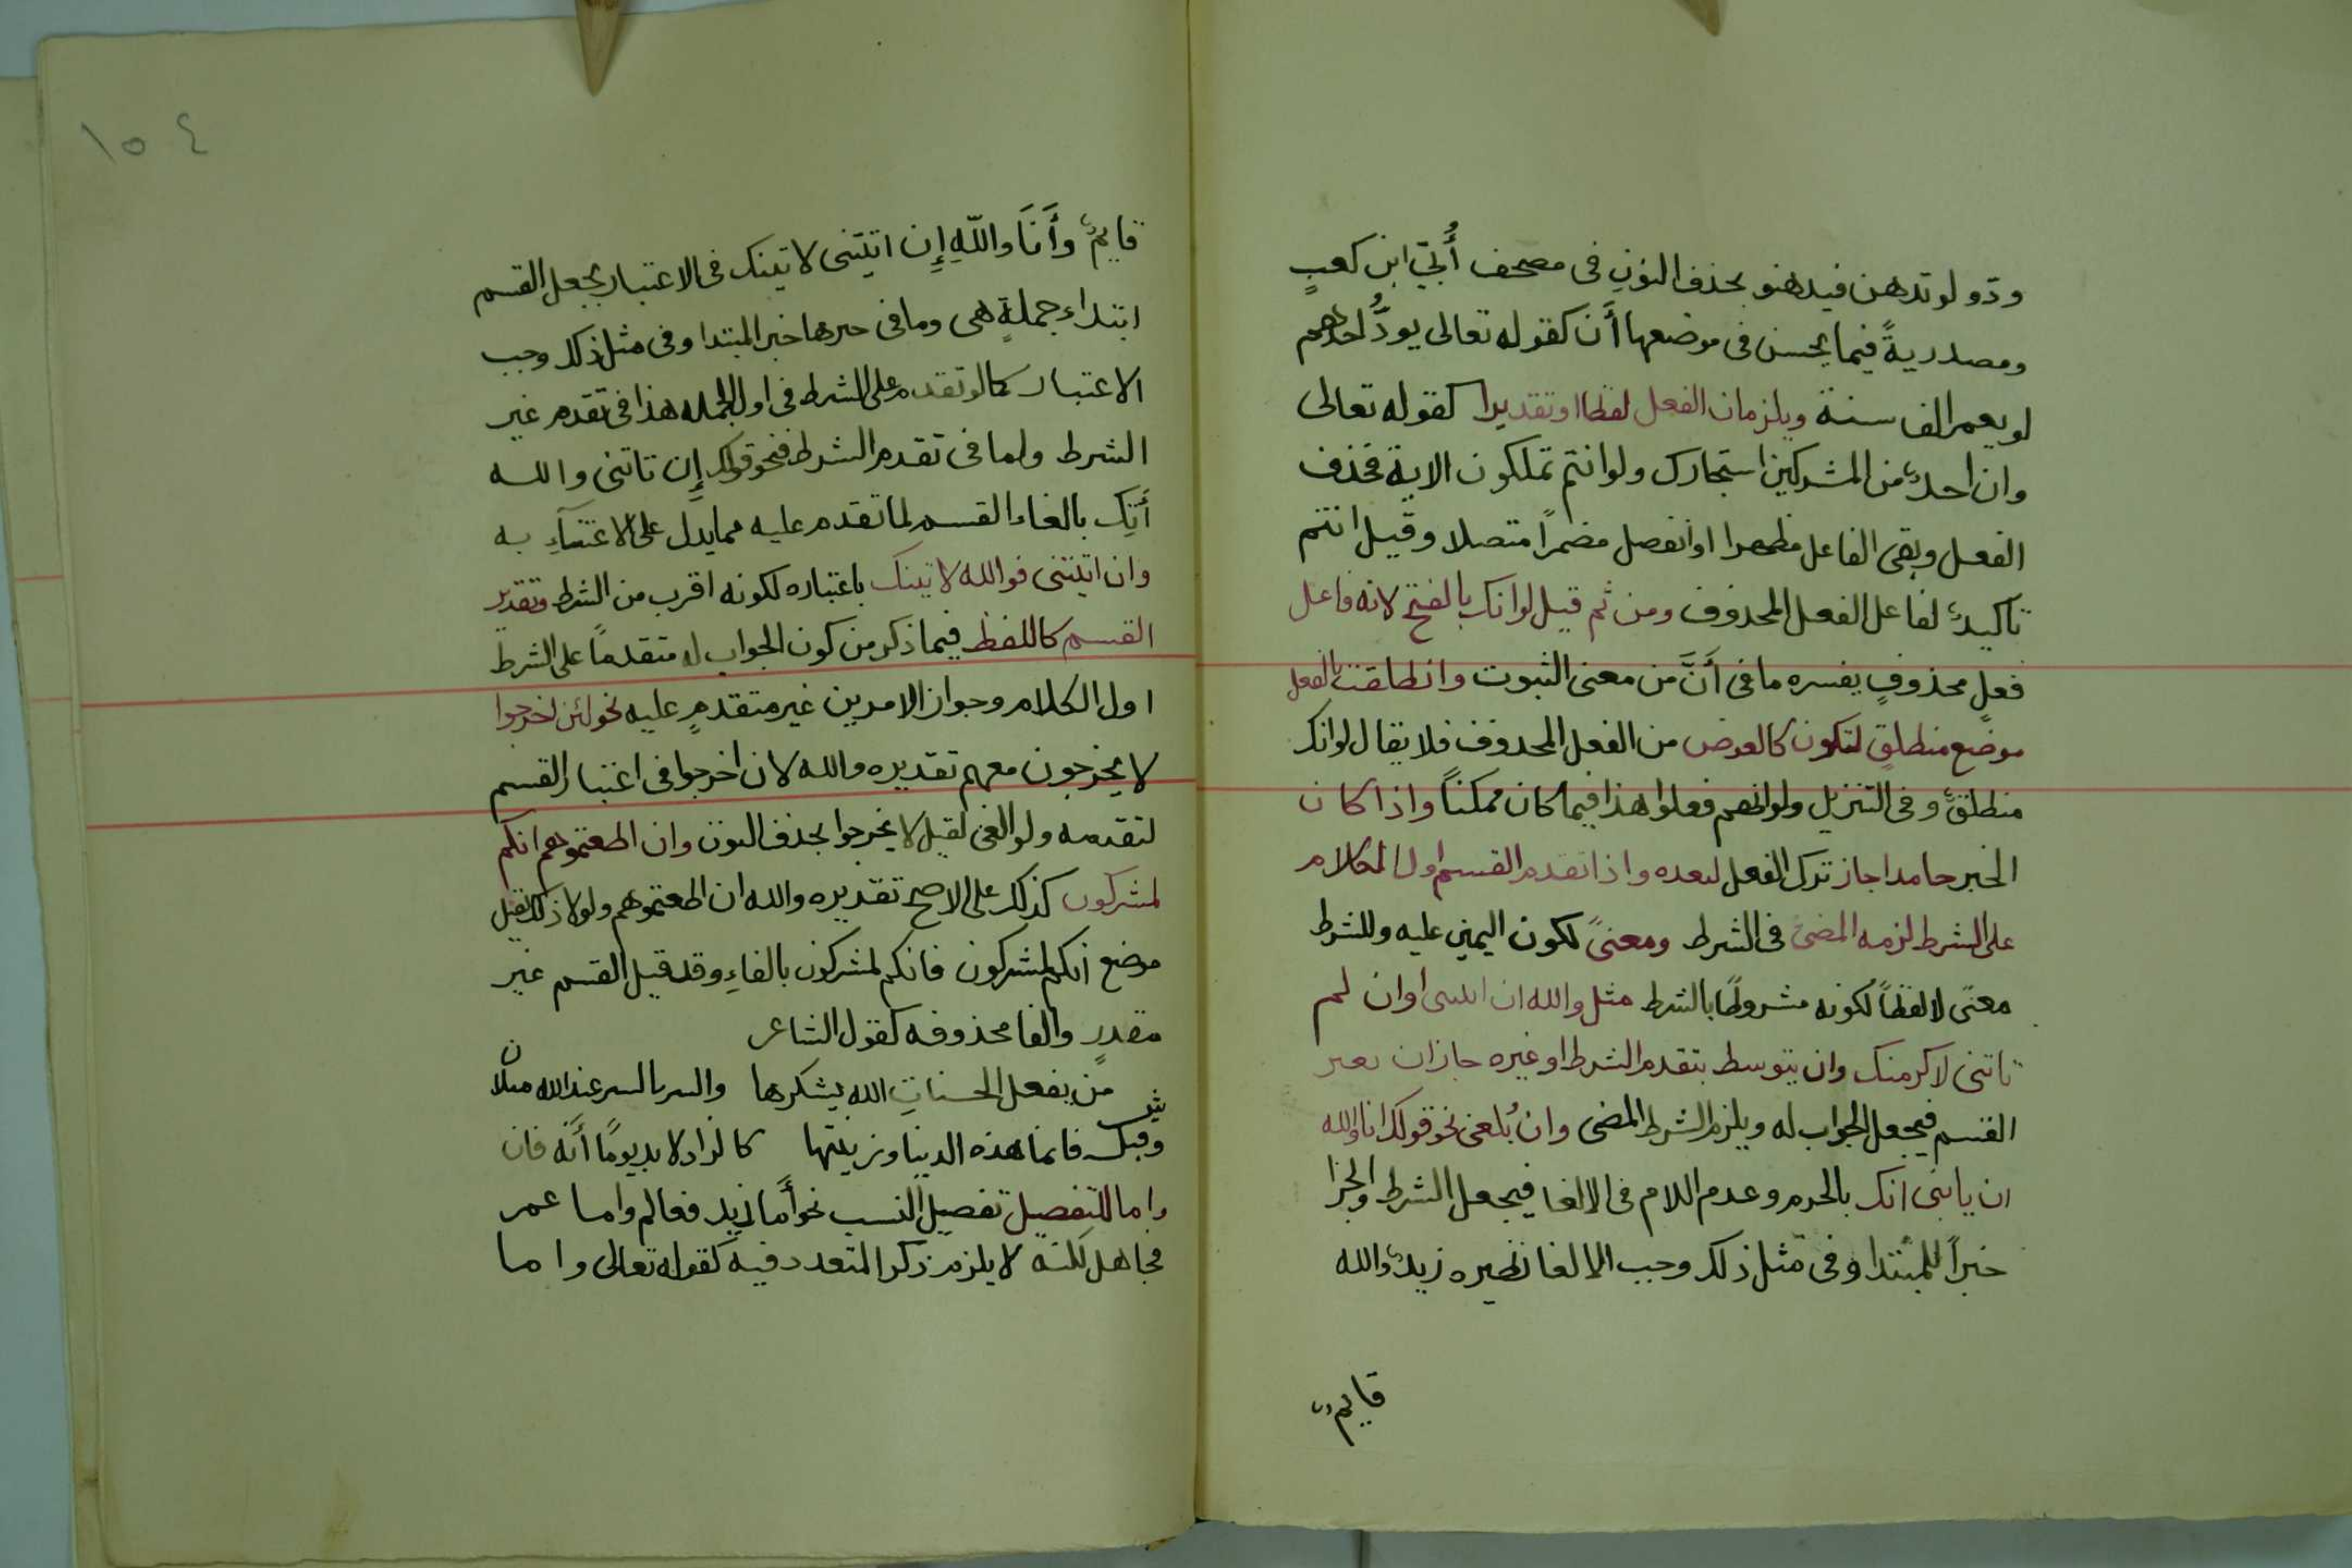 ودّو لو تدهن فيدهنو بحذف النون فى مصحف أُبَيّ ابن كعبٍ
ومصدريةً فيما يحسن فى موضعها أَن كقوله تعالى يودُّ احدهم
لو يعمر الف سنة ويلزمان الفعل لفظا او تقديرا كقوله تعالى
وان احدٌ من المشركين استجارك ولو انتم تملكون الاية فحذف
الفعل وبقى الفاعل مظهرا او انفصل مضمراً متصلا وقيل انتم
تاكيدٌ لفاعل الفعل المحذوف ومن ثم قيل لو انك بالفتح لانه فاعل
فعلٍ محذوفٍ يفسره ما فى أَنَّ من معنى الثبوت وانطلقت بالفعل
موضع منطلقٍ لتكون كالعوض من الفعل المحذوف فلا يقال لو انك
منطلقٌ وفى التنزيل ولو انهم فعلوا هذا فيما كان ممكناً واذا كان
الخبر جامدا جاز ترك الفعل لبعده واذا تقدم القسم اول الكلام
على الشرط لزمه المضىّ فى الشرط ومعنىً لكون اليمين عليه وللشرط
معنًى لا لفظاً لكونه مشروطًا بالشرط مثل والله ان اتيتنى او ان لم
تاتنى لاكرمنك وان يتوسط بتقدم الشرط او غيره جاز ان يعتبر
القسم فيجعل الجواب له ويلزم الشرط المضى وان يُلغى نحو قولك انا والله
ان ياتنى اتك بالجزم وعدم اللام فى الالغا فيجعل الشرط والجزا
خبراً للمبتدا وفى مثل ذلك وجب الالغا نظيره زيدٌ والله
قايمٌ
١٥٤
قايمٌ وأَنَا واللّهِ إِن اتيتنى لاتينك فى الاعتبار بجعل القسم
ابتداء جملةٍ هى وما فى حيزها خبر المبتدا وفى مثل ذلك وجب
الاعتبار كما لو تقدم على الشرط فى اول الجمله هذا فى تقدم غير
الشرط واما فى تقدم الشرط فنحو قولك إِن تاتنى والله
أَتِك بالغاء القسم لما تقدم عليه مما يدل على الاعتنآءِ به
وان اتيتنى فوالله لاتينك باعتباره لكونه اقرب من الشرط وتقدير
القسم كاللفظ فيما ذكر من كون الجواب له متقدماً على الشرط
اول الكلام وجواز الامرين غير متقدمٍ عليه نحو لئن اخرجوا
لا يخرجون معهم تقديره والله لان اخرجوا فى اعتبار القسم
لتقدمه ولو الغى لقيل لا يخرجوا بحذف النون وان اطعتموهم انكم
لمشركون كذلك على الاصح تقديره والله ان اطعتموهم ولولا ذلك لقيل
موضع انكم لمشركون فانكم لمشركون بالفاءِ وقد قيل القسم غير
مقدرٍ والفا محذوفه كقول الشاعر
من يفعل الحسناتِ الله يشكرها والشر بالشر عند الله مثلان
وقبله فانما هذه الدنيا وزينتها كالزاد لا بد يومًا أَنه فان
واما للتفصيل تفصيل النسب نحو أَما زيد فعالم واما عمر
فجاهل لكنه لا يلزم ذكر المتعدد فيه كقوله تعالى واما